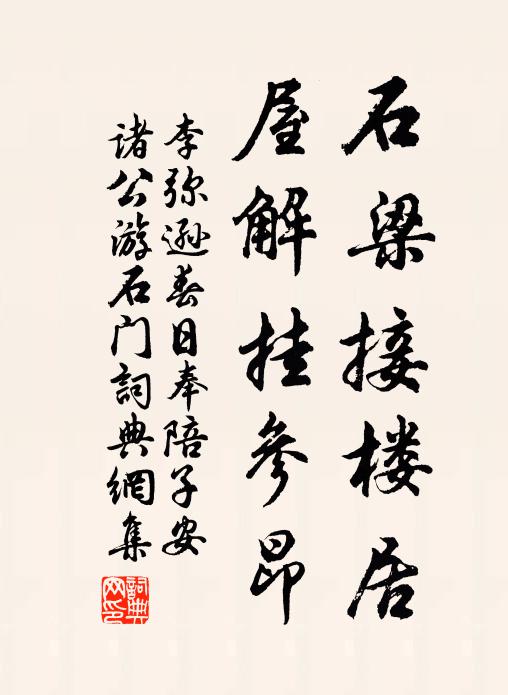 石梁接楼居
屋解挂参昂
李弥逊春日奉陪子安
诸公游石门詞典網集
詞典網印